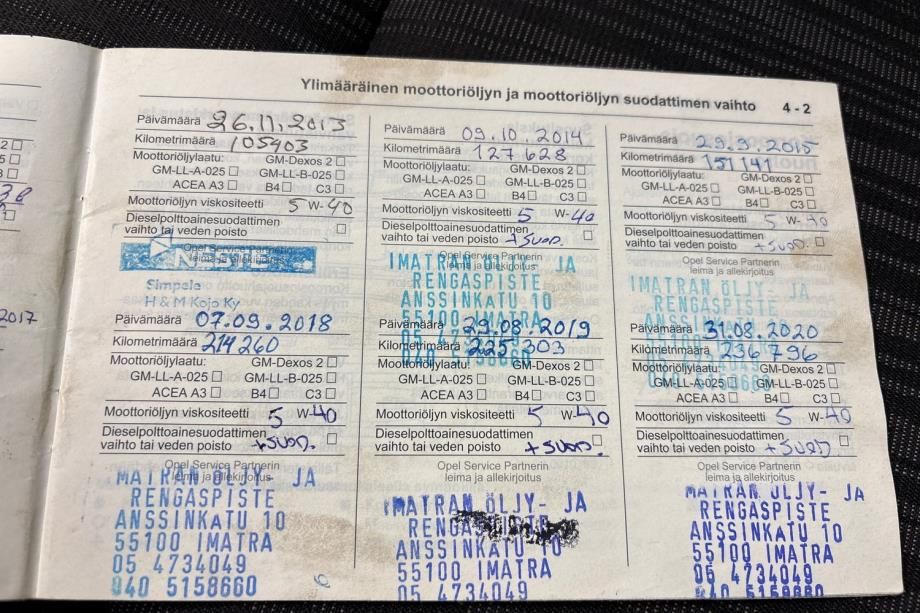 Ylimääräinen moottoriöljyn ja moottoriöljyn suodattimen vaihto 4 - 2
Päivämäärä 26.11.2013
Kilometrimäärä 105403
Moottoriöljylaatu: GM-Dexos 2
GM-LL-A-025 GM-LL-B-025
ACEA A3 B4 C3
Moottoriöljyn viskositeetti 5 W-40
Dieselpolttoainesuodattimen
vaihto tai veden poisto
Opel Service Partnerin
NESTE
Simpele
H & M Kojo Ky
Päivämäärä 09.10.2014
Kilometrimäärä 127628
Moottoriöljylaatu: GM-Dexos 2
GM-LL-A-025 GM-LL-B-025
ACEA A3 B4 C3
Moottoriöljyn viskositeetti 5 W-40
Dieselpolttoainesuodattimen
vaihto tai veden poisto +SUOD.
Opel Service Partnerin
leima ja allekirjoitus
IMATRAN ÖLJY- JA
RENGASPISTE
ANSSINKATU 10
55100 IMATRA
05
040 5158660
Päivämäärä 29.9.2015
Kilometrimäärä 151141
Moottoriöljylaatu: GM-Dexos 2
GM-LL-A-025 GM-LL-B-025
ACEA A3 B4 C3
Moottoriöljyn viskositeetti 5 W-40
Dieselpolttoainesuodattimen
vaihto tai veden poisto +SUOD.
Opel Service Partnerin
leima ja allekirjoitus
IMATRAN ÖLJY- JA
RENGASPISTE
55100
Päivämäärä 07.09.2018
Kilometrimäärä 214260
Moottoriöljylaatu: GM-Dexos 2
GM-LL-A-025 GM-LL-B-025
ACEA A3 B4 C3
Moottoriöljyn viskositeetti 5 W-40
Dieselpolttoainesuodattimen
vaihto tai veden poisto +SUOD.
Opel Service Partnerin
leima ja allekirjoitus
MATRAN ÖLJY- JA
RENGASPISTE
ANSSINKATU 10
55100 IMATRA
05 4734049
040 5158660
Päivämäärä 29.08.2019
Kilometrimäärä 225303
Moottoriöljylaatu: GM-Dexos 2
GM-LL-A-025 GM-LL-B-025
ACEA A3 B4 C3
Moottoriöljyn viskositeetti 5 W-40
Dieselpolttoainesuodattimen
vaihto tai veden poisto +SUOD.
Opel Service Partnerin
leima ja allekirjoitus
IMATRAN ÖLJY- JA
ANSSINKATU 10
55100 IMATRA
05 4734049
Päivämäärä 31.08.2020
Kilometrimäärä 236796
Moottoriöljylaatu: GM-Dexos 2
GM-LL-A-025 GM-LL-B-025
ACEA A3 B4 C3
Moottoriöljyn viskositeetti 5 W-40
Dieselpolttoainesuodattimen
vaihto tai veden poisto +SUOD
Opel Service Partnerin
leima ja allekirjoitus
IMATRAN ÖLJY- JA
RENGASPISTE
ANSSINKATU 10
55100 IMATRA
05 4734049
040 5158660
2017